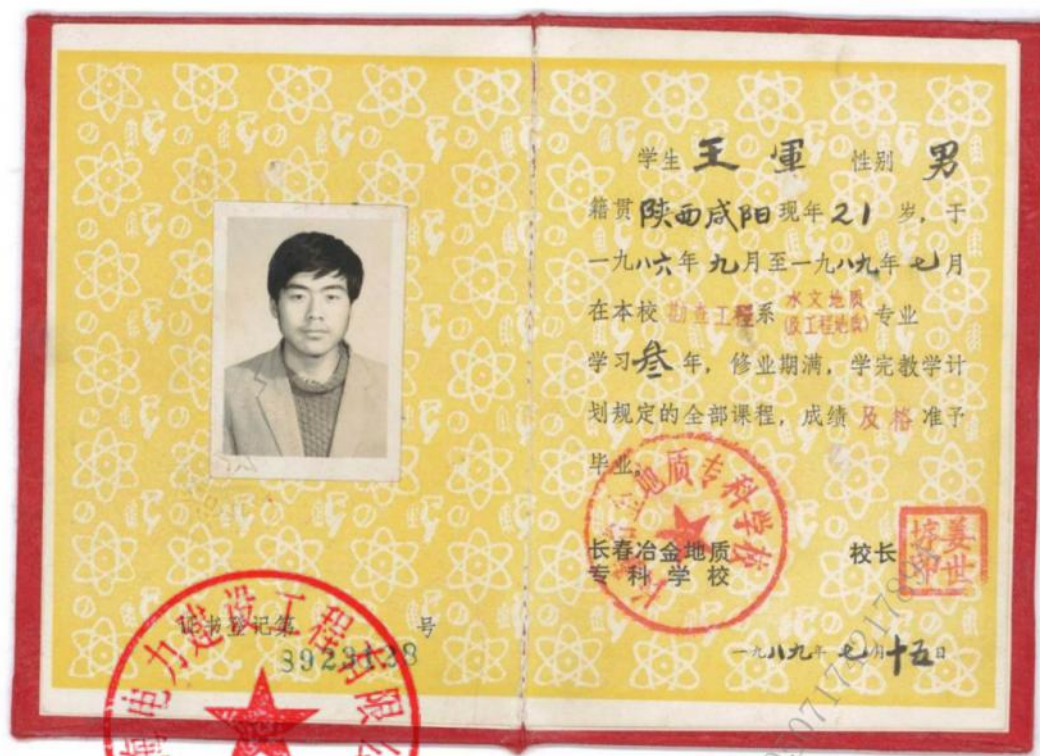 证书登记第 号
8923128
电力建设工程有限公
学生 王軍 性别 男
籍贯 陕西咸阳 现年 21 岁，于
一九八六年九月至一九八九年七月
在本校 勘查工程系 水文地质(及工程地质) 专业
学习叁年，修业期满，学完教学计
划规定的全部课程，成绩 及格 准予
毕业。
金地质专科学校
长春冶金地质
专科学校
校长
姜世
一九八九年七月十五日